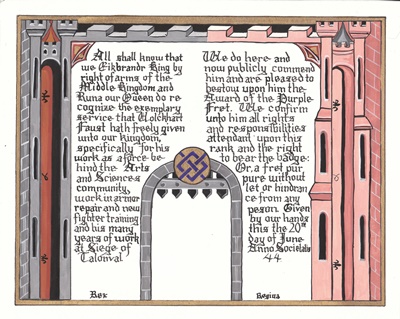 All shall know that
we Eikbrandr King by
right of arms of the
Middle Kingdom and
Runa our Queen do re
cognize the exemplary
service that Wolckhart
Faust hath freely given
unto our kingdom,
specifically for his
work as a force be-
hind the Arts
and Sciences
community,
work in armor
repair and new
fighter training
and his many
years of work
at Siege of
Talonval
Rex
We do here and
now publicly commend
him and are pleased to
bestow upon him the
Award of the Purple
Fret. We confirm
unto him all rights
and responsibilities
attendant upon this
rank and the right
to bear the badge:
Or, a fret pur
pure without
let or hindran
ce from any
peson. Given
by our hands
this the 20th
day of June
Anno Societatis
44
Regina